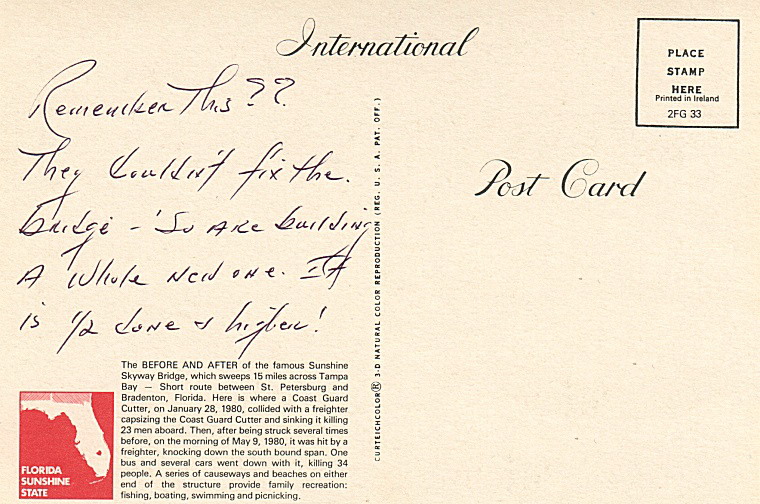 International
PLACE
STAMP
HERE
Printed in Ireland
2FG 33
Post Card
Remember This??
They Couldn't fix the.
Bridge - 'So Are building
A Whole New one. It
is 1/2 done & higher!
CURTEICHCOLOR® 3-D NATURAL COLOR REPRODUCTION (REG. U. S. A. PAT. OFF.)
The BEFORE AND AFTER of the famous Sunshine
Skyway Bridge, which sweeps 15 miles across Tampa
Bay — Short route between St. Petersburg and
Bradenton, Florida. Here is where a Coast Guard
Cutter, on January 28, 1980, collided with a freighter
capsizing the Coast Guard Cutter and sinking it killing
23 men aboard. Then, after being struck several times
before, on the morning of May 9, 1980, it was hit by a
freighter, knocking down the south bound span. One
bus and several cars went down with it, killing 34
people. A series of causeways and beaches on either
end of the structure provide family recreation:
fishing, boating, swimming and picnicking.
FLORIDA
SUNSHINE
STATE